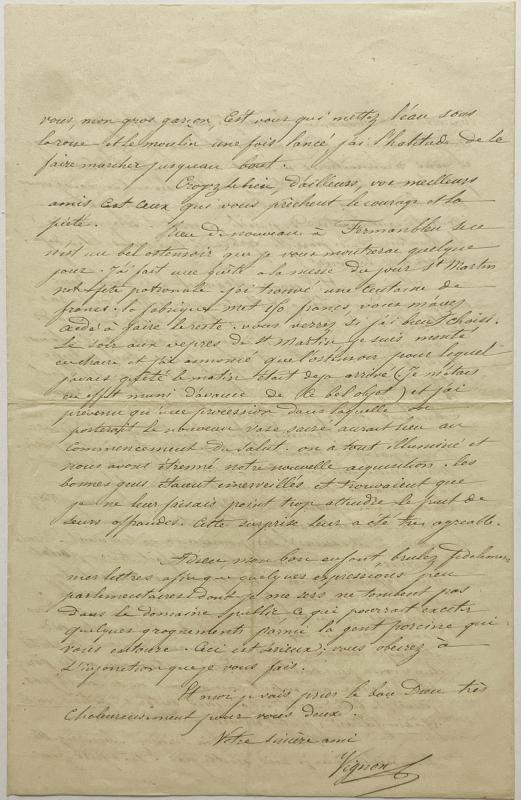 vous, mon gros garçon, C'est vous qui mettez l'eau sous
la roue et le moulin une fois lancé j'ai l'habitude de le
faire marcher jusqu'au bout.
Croyez le bien, d'ailleurs, vos meilleurs
amis est ceux que vous prêchent le courage et la
piété. Rien de nouveau à Fermanbleu si ce
n'est un bel ostensoir que je vous montrerai quelque
jour. J'ai fait une quête à la messe du jour St Martin
notre fête patronale. j'ai trouvé une centaine de
francs. la fabrique met 50 francs, vous m'avez
aidé à faire le reste. vous verrez si j'ai bien choisi.
Le soir aux vêpres de St Martin je suis monté
en chaire et j'ai annoncé que l'ostensoir pour lequel
j'avais quêté le matin était déjà arrivé (Je m'étais
en effet muni d'avance de ce bel objet) et j'ai
prévenu qu'une procession dans laquelle on
porterait le nouveau vase sacré aurait lieu au
commencement du salut. on a tout illuminé et
nous avons étrenné notre nouvelle acquisition. les
bonnes gens étaient émerveillés et trouvaient que
je ne leur faisais point trop attendre le fruit de
leurs offrandes. Cette surprise leur a été très agréable.
Adieu mon bon enfant, brulez fidèlement
mes lettres afin que quelques expressions peu
parlementaires dont je me sers ne tombent pas
dans le domaine public, ce qui pourrait exciter
quelques grognements parmi la gent porcine qui
vous entoure. Ceci est sérieux; vous obéirez à
L'injonction que je vous fais.
Et moi je vais prier le bon Dieu très
chaleureusement pour vous deux.
Votre sincère ami
Vignon